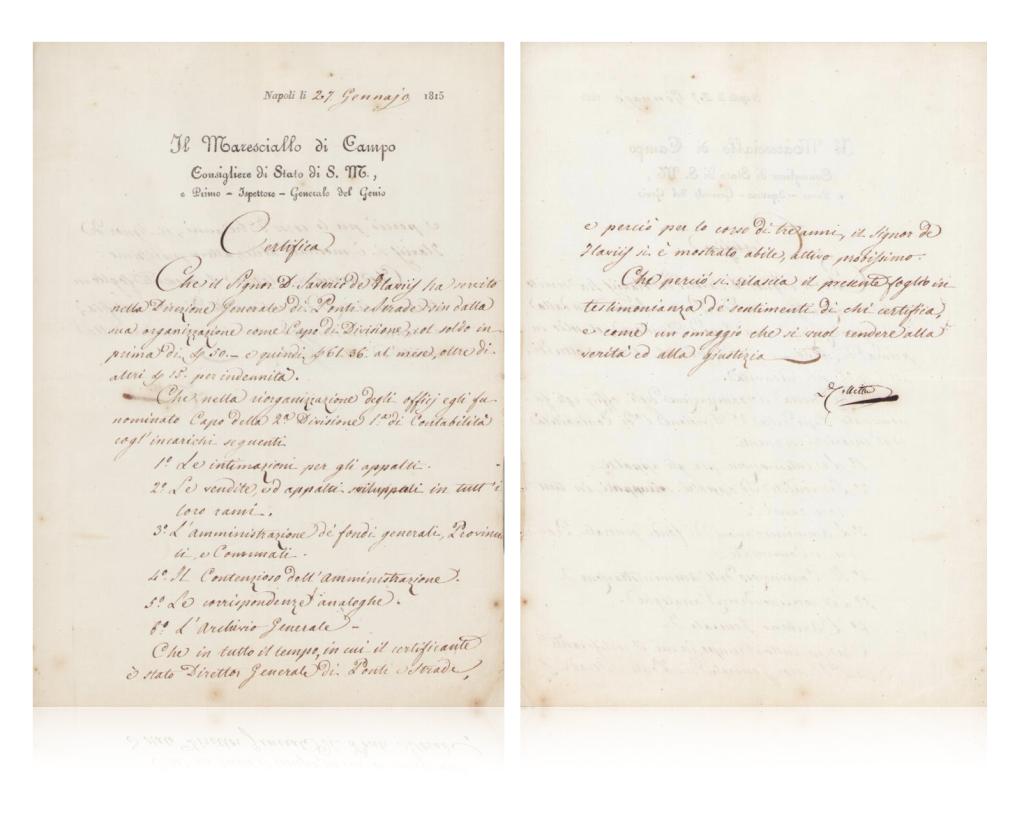 Napoli li 27 Gennajo 1815
Il Maresciallo di Campo
Consigliere di Stato di S. M.,
e Primo - Ispettore - Generale del Genio
Certifica
Che il Signor D. Saverio de Flaviis ha servito
nella Direzione Generale di Ponti e Strade sin dalla
sua organizazione come Capo di Divisione, col soldo in-
prima di 50.- e quindi 61. 36. al mese, oltre di
altri 15. per indennità.
Che nella riorganizzazione degli officj egli fu
nominato Capo della 2.a Divisione 1.a di Contabilità
cogl' incarichi seguenti
1.° Le intimazioni per gli appalti.
2.° Le vendite, ed appalti sviluppati in tutt' i
loro rami.
3.° L'Amministrazione de' fondi generali, Provincia
li, e Communali.
4.° Il Contenzioso dell'Amministrazione.
5.° Le corrispondenze analoghe.
6.° L'Archivio Generale -
Che in tutto il tempo, in cui il certificante
è stato Direttor Generale di Ponti e Strade,
e perciò per lo corso di tre anni, il Signor de
Flaviis si è mostrato abile, attivo probissimo.
Che perciò si rilascia il presente foglio in
testimonianza de' sentimenti di chi certifica,
e come un omaggio che si vuol rendere alla
verità ed alla giustizia
Colletta